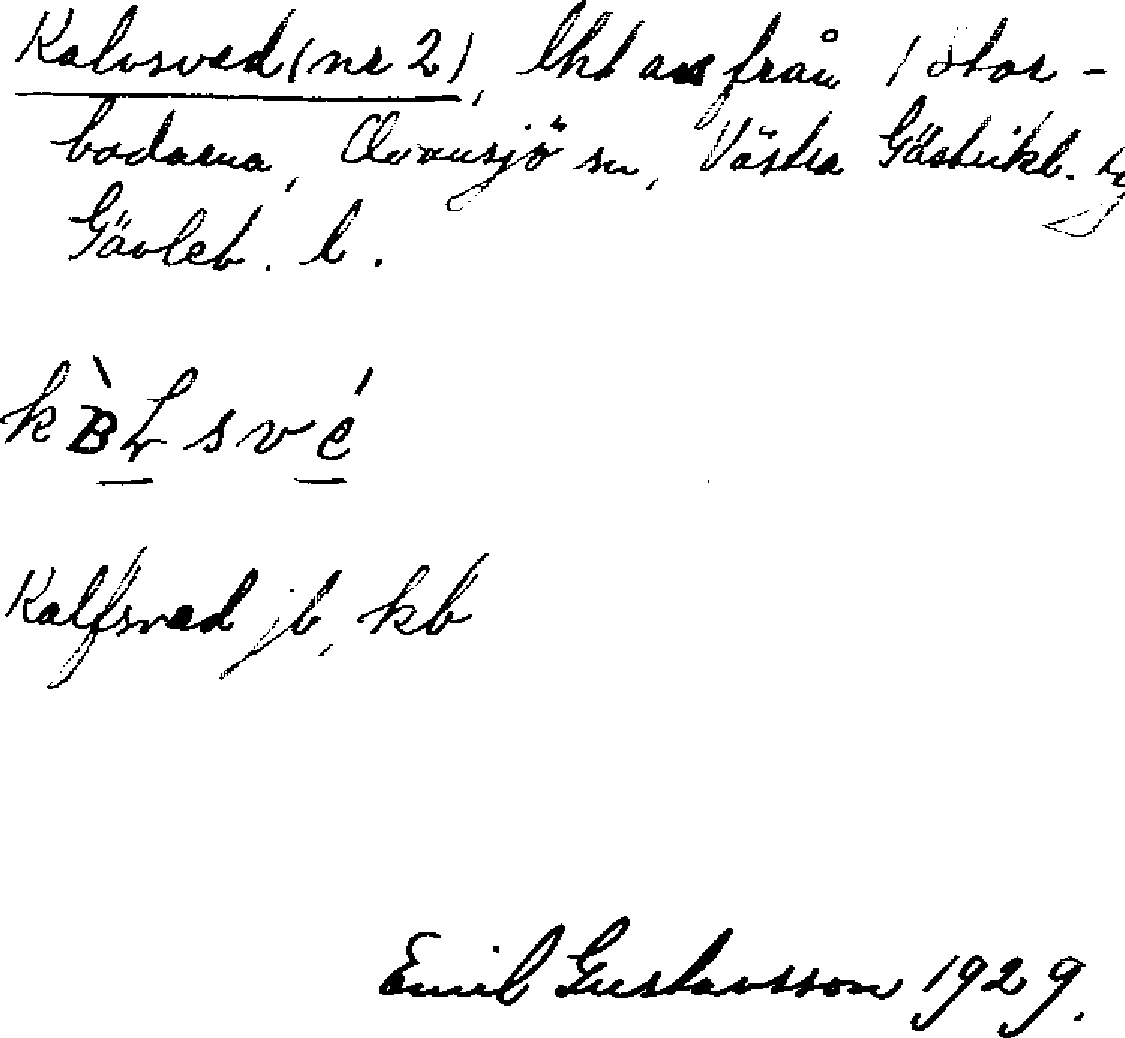 Kalvsved (nr 2), lht avs från 1 Stor-
bodarna, Ovansjö sn, Västra Gästrikl. tg
Gävleb. l.
kàLsvé
Kalfsved jb, kb
Emil Gustavsson 1929.